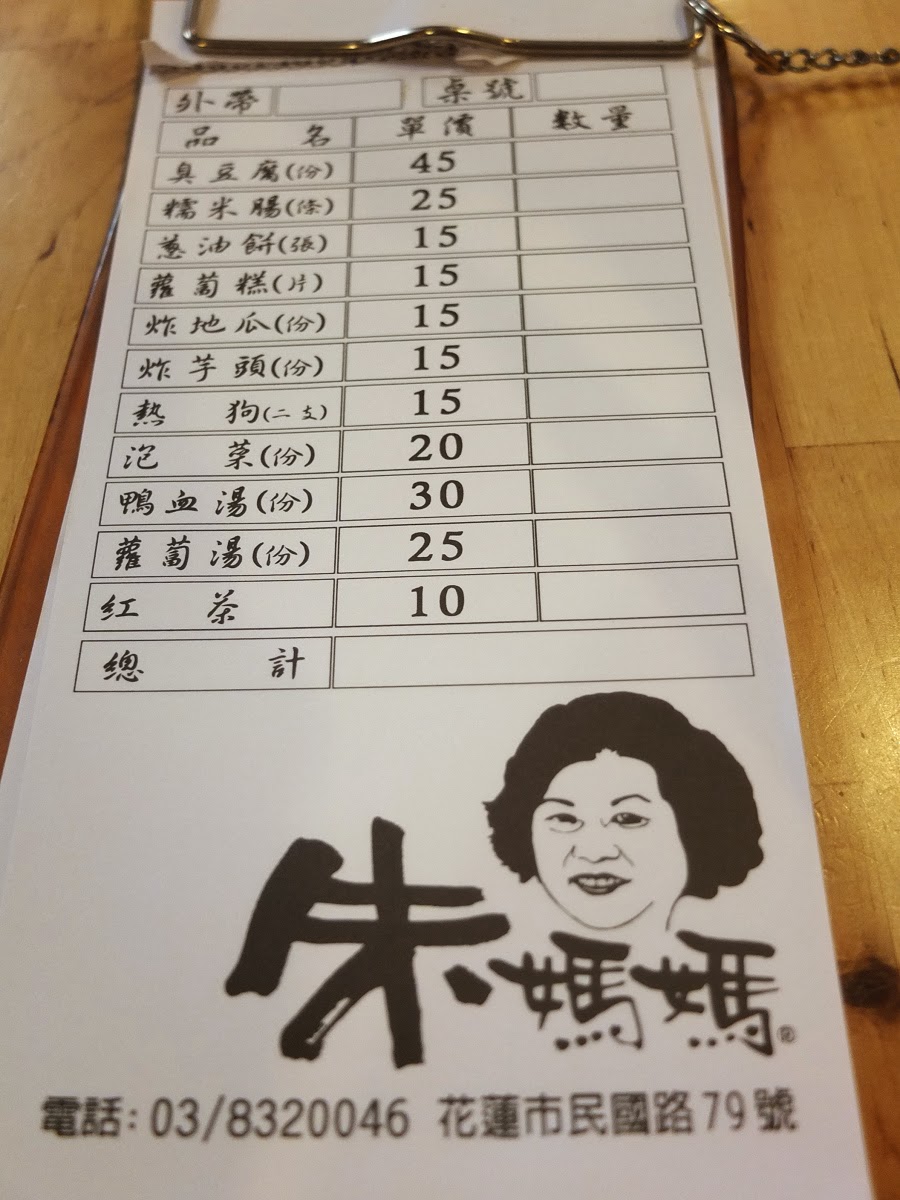 外帶 桌號
品名 單價 數量
臭豆腐(份) 45
糯米腸(條) 25
蔥油餅(張) 15
蘿蔔糕(片) 15
炸地瓜(份) 15
炸芋頭(份) 15
熱狗(二支) 15
泡菜(份) 20
鴨血湯(份) 30
蘿蔔湯(份) 25
紅茶 10
總計
朱媽媽®
電話: 03/8320046 花蓮市民國路79號